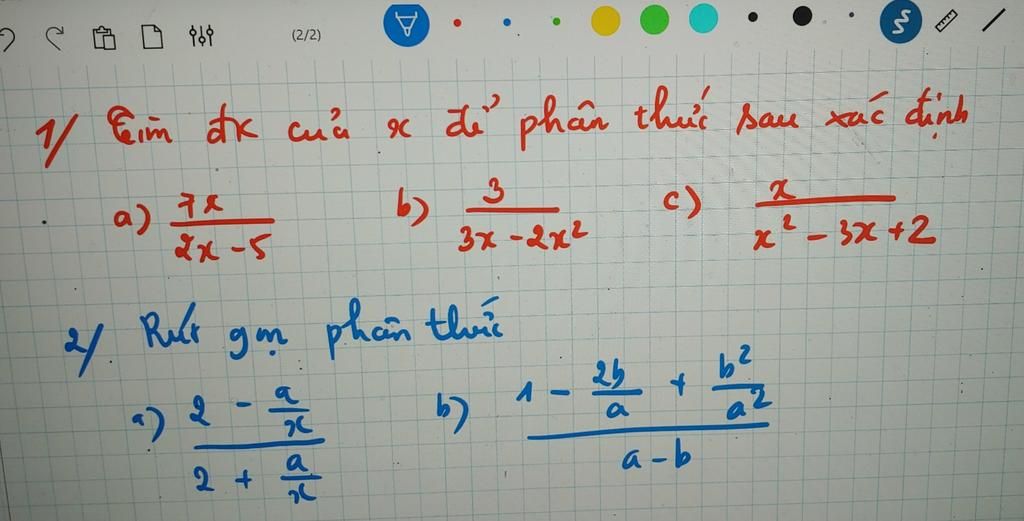 (2/2)
1/ Tìm đk của x để phân thức sau xác định
a) 7x / (2x - 5) b) 3 / (3x - 2x²) c) x / (x² - 3x + 2)
2/ Rút gọn phân thức
a) (2 - a/x) / (2 + a/x) b) (1 - 2b/a + b²/a²) / (a - b)